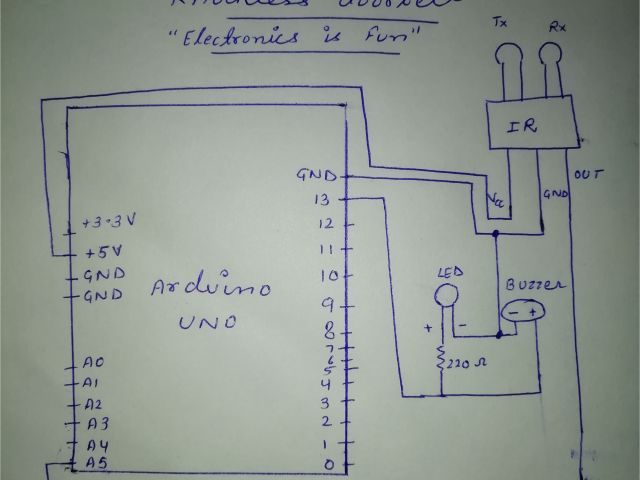 "Electronics is Fun"
Tx
Rx
IR
OUT
Vcc
GND
GND
13
12
11
10
9
8
7
6
5
4
3
2
1
0
+3.3V
+5V
GND
GND
A0
A1
A2
A3
A4
A5
Arduino
UNO
LED
+
-
220 Ω
Buzzer
- +